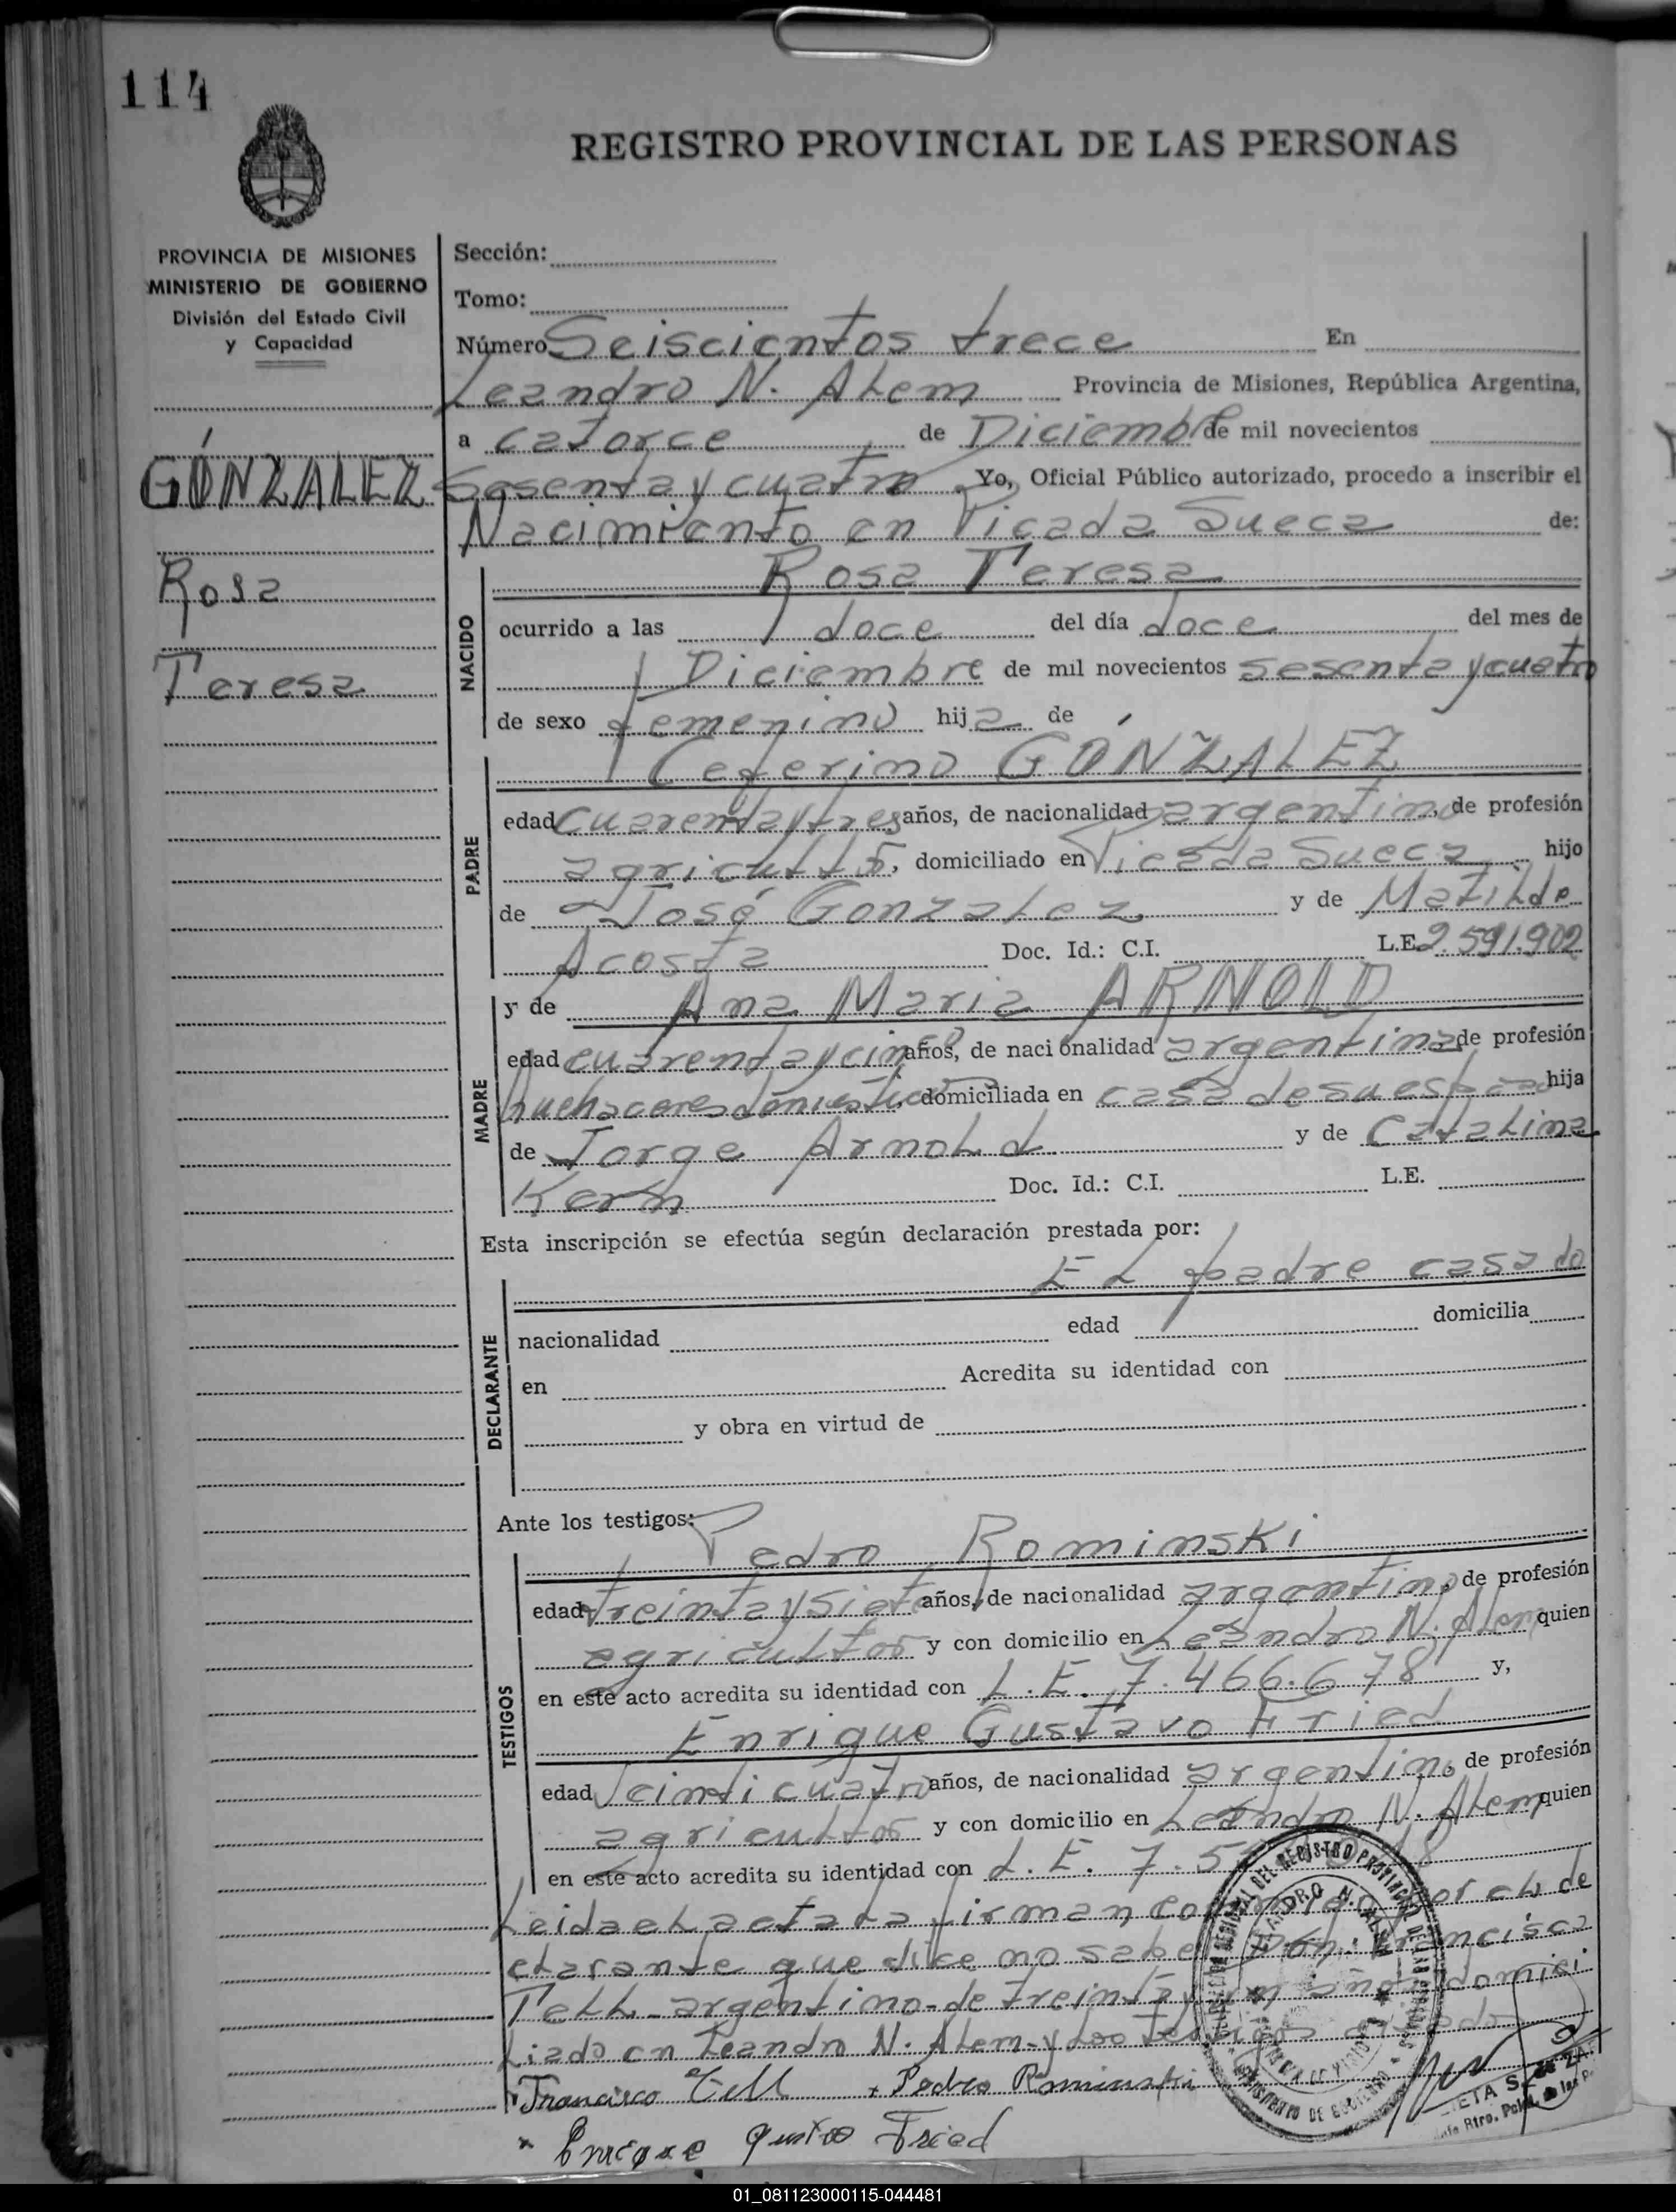 114
REGISTRO PROVINCIAL DE LAS PERSONAS
PROVINCIA DE MISIONES
MINISTERIO DE GOBIERNO
División del Estado Civil
y Capacidad
GÓNZALEZ
Rosa
Teresa
Sección:
Tomo:
Número Seiscientos trece En
Leandro N. Alem Provincia de Misiones, República Argentina,
a catorce de Diciembre de mil novecientos
Sesenta y cuatro Yo, Oficial Público autorizado, procedo a inscribir el
Nacimiento en Picada Sueca de:
NACIDO
Rosa Teresa
ocurrido a las doce del día doce del mes de
Diciembre de mil novecientos sesenta y cuatro
de sexo femenino hija de
PADRE
Ceferino GÓNZALEZ
edad cuarenta y tres años, de nacionalidad argentino, de profesión
agricultor, domiciliado en Picada Sueca hijo
de José Gonzalez y de Matilde
Acosta Doc. Id.: C.I. L.E. 2.591.902
MADRE
y de Ana Maria ARNOLD
edad cuarenta y cinco años, de nacionalidad argentina de profesión
quehaceres domésticos, domiciliada en casa de su esposo hija
de Jorge Arnold y de Catalina
Kern Doc. Id.: C.I. L.E.
Esta inscripción se efectúa según declaración prestada por:
DECLARANTE
El padre casado
nacionalidad edad domicilia
en Acredita su identidad con
y obra en virtud de
Ante los testigos:
TESTIGOS
Pedro Rominski
edad treinta y siete años, de nacionalidad argentino, de profesión
agricultor y con domicilio en Leandro N. Alem quien
en este acto acredita su identidad con L.E. 7.466.678 y,
Enrique Gustavo Fried
edad veinticuatro años, de nacionalidad argentino, de profesión
agricultor y con domicilio en Leandro N. Alem quien
en este acto acredita su identidad con L.E. 7.5
Leida el acta la firman conmigo por el de
clarante que dice no saber Don Francisco
Tell - argentino - de treinta y un años domici
liado en Leandro N. Alem - y los testigos
Francisco Tell Pedro Rominski
Enrique Gustavo Fried
LEANDRO N. ALEM
01_081123000115-044481